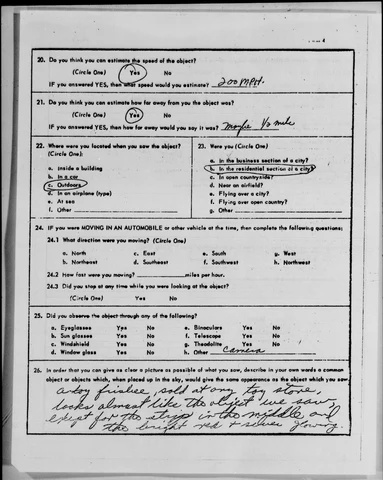 4
20. Do you think you can estimate the speed of the object?
(Circle One) Yes No
IF you answered YES, then what speed would you estimate? 200 MPH.
21. Do you think you can estimate how far away from you the object was?
(Circle One) Yes No
IF you answered YES, then how far away would you say it was? maybe 1/2 mile
22. Where were you located when you saw the object?
(Circle One):
a. Inside a building
b. In a car
c. Outdoors
d. In an airplane (type)
e. At sea
f. Other
23. Were you (Circle One)
a. In the business section of a city?
b. In the residential section of a city?
c. In open countryside?
d. Near an airfield?
e. Flying over a city?
f. Flying over open country?
g. Other
24. IF you were MOVING IN AN AUTOMOBILE or other vehicle at the time, then complete the following questions:
24.1 What direction were you moving? (Circle One)
a. North c. East e. South g. West
b. Northeast d. Southeast f. Southwest h. Northwest
24.2 How fast were you moving? miles per hour.
24.3 Did you stop at any time while you were looking at the object?
(Circle One) Yes No
25. Did you observe the object through any of the following?
a. Eyeglasses Yes No e. Binoculars Yes No
b. Sun glasses Yes No f. Telescope Yes No
c. Windshield Yes No g. Theodolite Yes No
d. Window glass Yes No h. Other Camera
26. In order that you can give as clear a picture as possible of what you saw, describe in your own words a common
object or objects which, when placed up in the sky, would give the same appearance as the object which you saw.
a toy frisbee, sold at any toy store,
looks almost like the object we saw,
except for the strip in the middle and
the bright red + silver glowing.